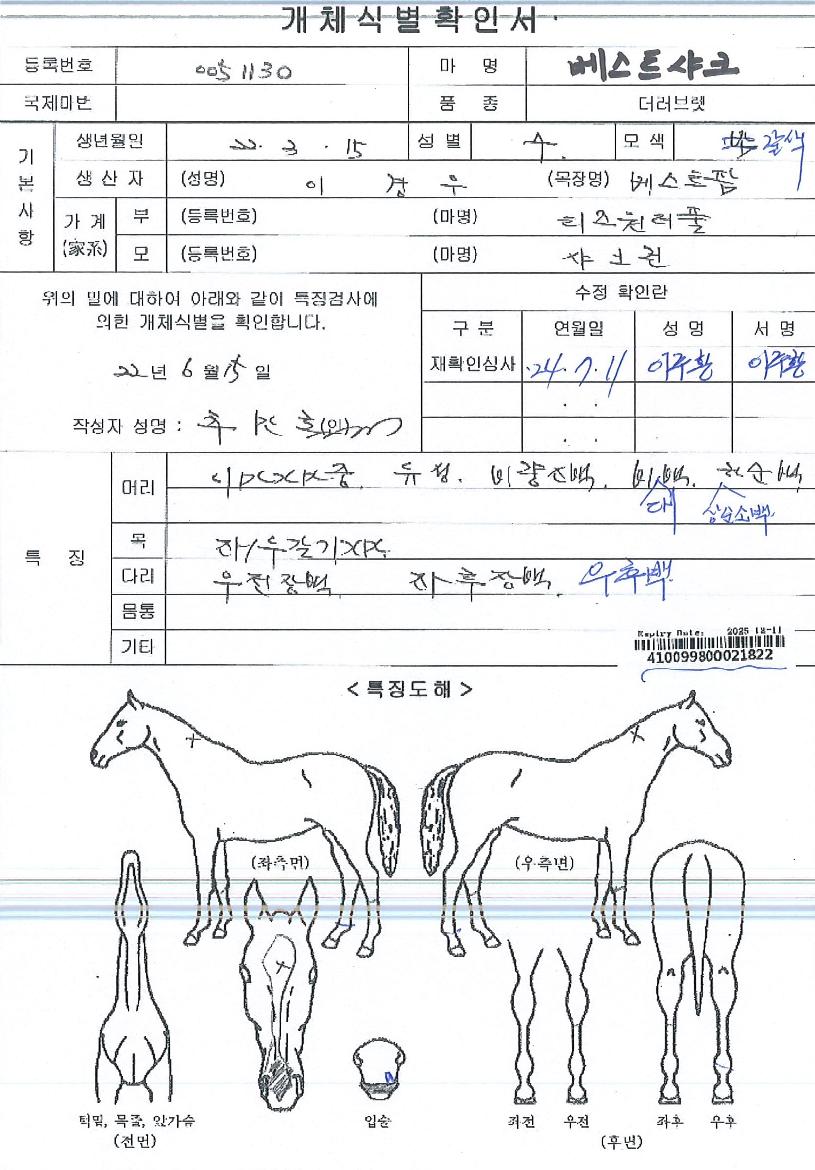 개체식별확인서
등록번호 0051130 마 명 베스트샤크
국제마번 품 종 더러브렛
기본사항
생년월일 22. 3. 15 성별 수 모색 갈색
생산자 (성명) 이 경 우 (목장명) 베스트팜
가계 (家系) 부 (등록번호) (마명) 티즈원더풀
모 (등록번호) (마명) 샤크퀸
위의 말에 대하여 아래와 같이 특징검사에
의한 개체식별을 확인합니다.
22년 6월 15일
작성자 성명 : (인)
수정 확인란
구 분 연월일 성 명 서 명
재확인심사 '24. 7. 11 이주환 이주환
특 징
머리 유성. 비량신백. 비백.
대 상순소백
목 좌/우갈기
다리 우전장백. 좌후장백. 우후백
몸통
기타
Expiry Date: 2025-12-11
410099800021822
<특징도해>
(좌측면) (우측면)
턱밑, 목줄, 앞가슴
(전면)
입술
좌전 우전 좌후 우후
(후면)